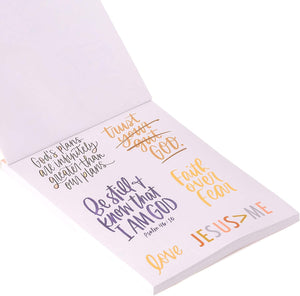 God's plans
are infinitely
greater than
our plans
trust
your
gut
GOD.
Be still &
know that
I AM GOD
Psalm 46:10
Faith
over
Fear
love
JESUS>ME